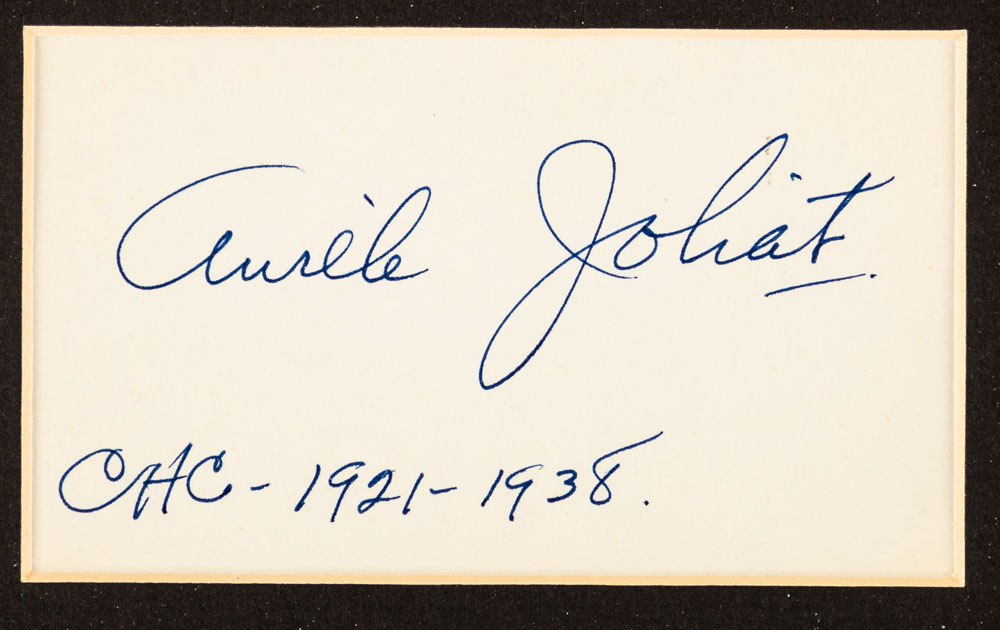 Aurèle Joliat.
CHC - 1921 - 1938.